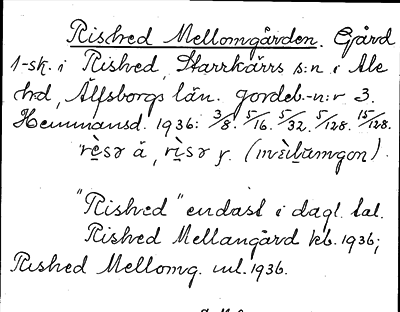 Rished Mellomgården. Gård
1-sk. i Rished, Starrkärrs s:n i Ale
hd, Älfsborgs län. jordeb.-n:r 3.
Hemmansd. 1936: 3/8. 5/16. 5/32. 5/128. 15/128.
"Rished" endast i dagl. tal.
Rished Mellangård kb. 1936;
Rished Mellomg. ml. 1936.